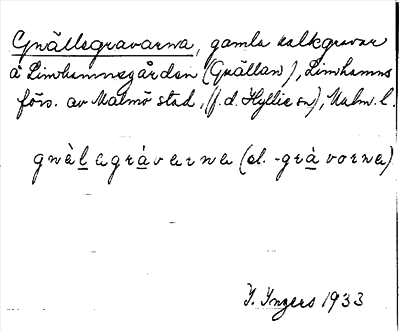 Gnällagravarna, gamla kalkgravar
å Limhamnsgården (Gnällan), Limhamns
förs. av Malmö stad, (f.d. Hyllie sn), Malm. l.
gnàlagràvarna (el. -gràvorna)
I. Ingers 1933